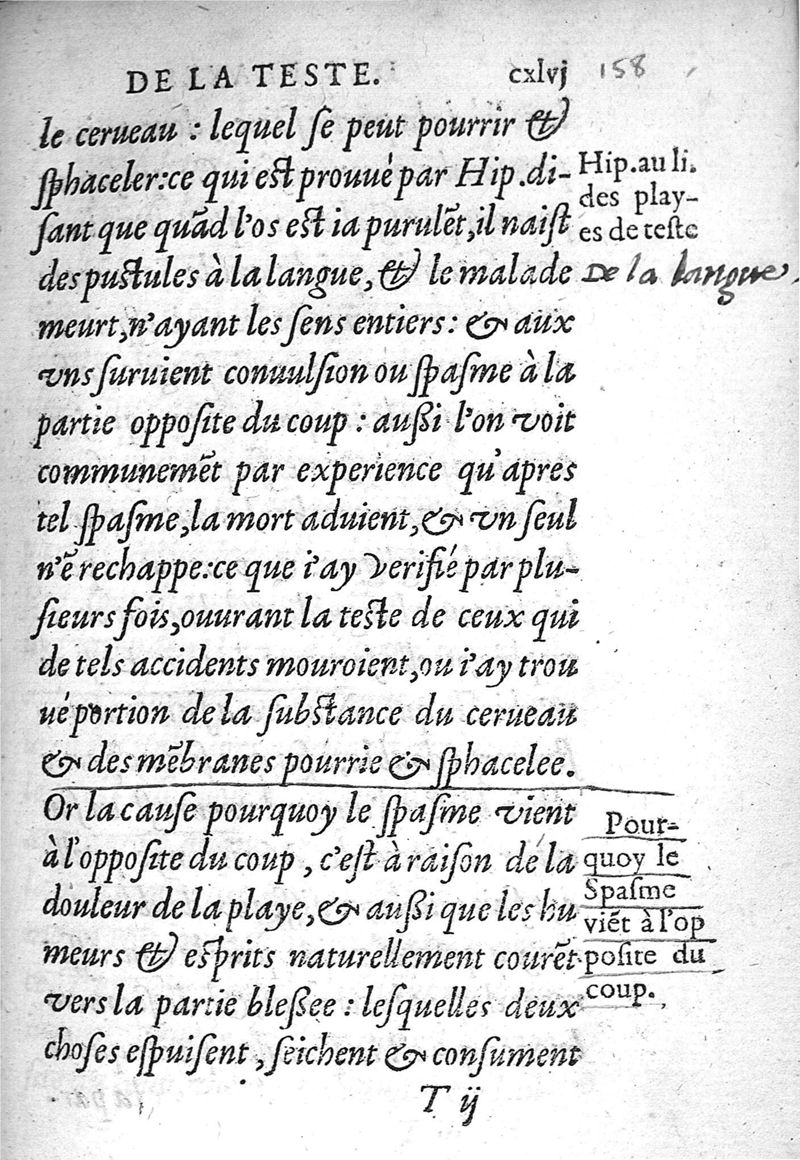 DE LA TESTE. cxlvj 158
le cerueau : lequel ſe peut pourrir &
ſphaceler:ce qui eſt prouué par Hip.di-
ſant que quãd l'os eſt ia purulẽt,il naiſt
des puſtules à la langue,& le malade
meurt,n'ayant les ſens entiers: & aux
vns ſuruient conuulſion ou ſpaſme à la
partie oppoſite du coup : außi l'on voit
communemẽt par experience qu'apres
tel ſpaſme,la mort aduient,& vn ſeul
n'ẽ rechappe:ce que i'ay verifié par plu-
ſieurs fois,ouurant la teſte de ceux qui
de tels accidents mouroient,ou i'ay trou
ué portion de la ſubſtance du cerueau
& des mẽbranes pourrie & ſphacelee.
Or la cauſe pourquoy le ſpaſme vient
à l'oppoſite du coup, c'eſt à raiſon de la
douleur de la playe,& außi que les hu
meurs & eſprits naturellement courẽt
vers la partie bleßee : leſquelles deux
choſes eſpuiſent, ſeichent & conſument
T ij
Hip.au li.
des play-
es de teſte
De la langue.
Pour-
quoy le
Spaſme
viẽt à l'op
poſite du
coup.